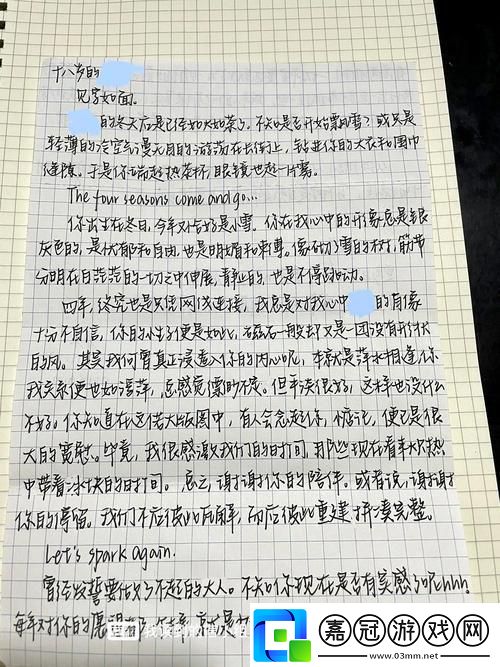 十八岁的
见字如面。
的冬天应是已经如火如荼了。不知是否开始飘雪？或只是
轻薄的冷空气漫无目的游荡在长街上，钻进你的大衣和围巾
缝隙。于是你端起热茶杯，眼镜也起一片雾。
The four seasons come and go...
你出生在冬日，今年又恰好是小雪。你在我心中的形象总是银
灰色的，是忧郁和自由，也是明媚和
。像初雪的树，筋节
分明在白茫茫的一切之中伸展，静止的，也是不得
动。
四年，终究也是只凭网线连接，我总是对我心中
的肖像
十分不自信，你的性子便是如此，磁石一般却又是一团没有形状
的风。其实我何曾真正浸透入你的内心呢，本就是萍水相逢，你
我关系便也如浮萍，总感觉飘眇不定。但平淡很好，这样也没什么
不好。你知道在这偌大版图中，有人会念起你，惦记，便已是很
大的宽慰。毕竟，我很感激我们的时间，那些现在看来水热
中带着冰块的时间。总之，谢谢你的陪伴。或者说，谢谢
你的停留。我们不启彼此瓦解，而启彼此重建拼凑完整。
Let's spark again.
曾经发誓要做了不起的大人。不知你现在是否有实感了呢hhh。
每年对你的愿望
嘉冠游戏网
www.03mm.net